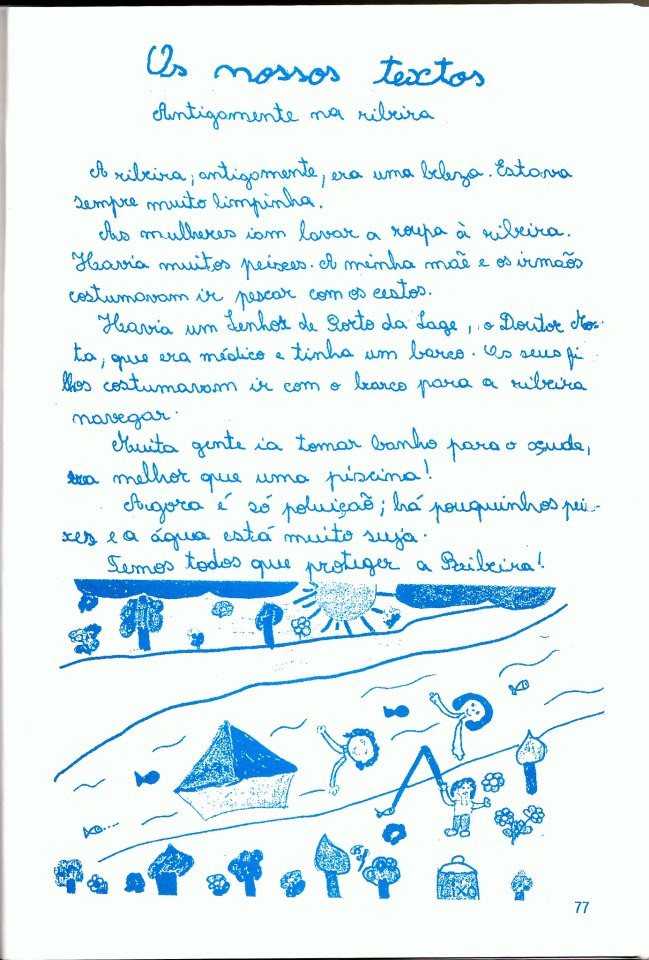 Os nossos textos
Antigamente na ribeira
A ribeira, antigamente, era uma beleza. Estava
sempre muito limpinha.
As mulheres iam lavar a roupa à ribeira.
Havia muitos peixes. A minha mãe e os irmãos
costumavam ir pescar com os cestos.
Havia um Senhor de Porto da Lage, o Doutor Mo-
ta, que era médico e tinha um barco. Os seus fi
lhos costumavam ir com o barco para a ribeira
navegar.
Muita gente ia tomar banho para o açude,
era melhor que uma piscina!
Agora é só poluição; há pouquinhos pei-
xes e a água está muito suja.
Temos todos que proteger a Ribeira!
LIXO
77